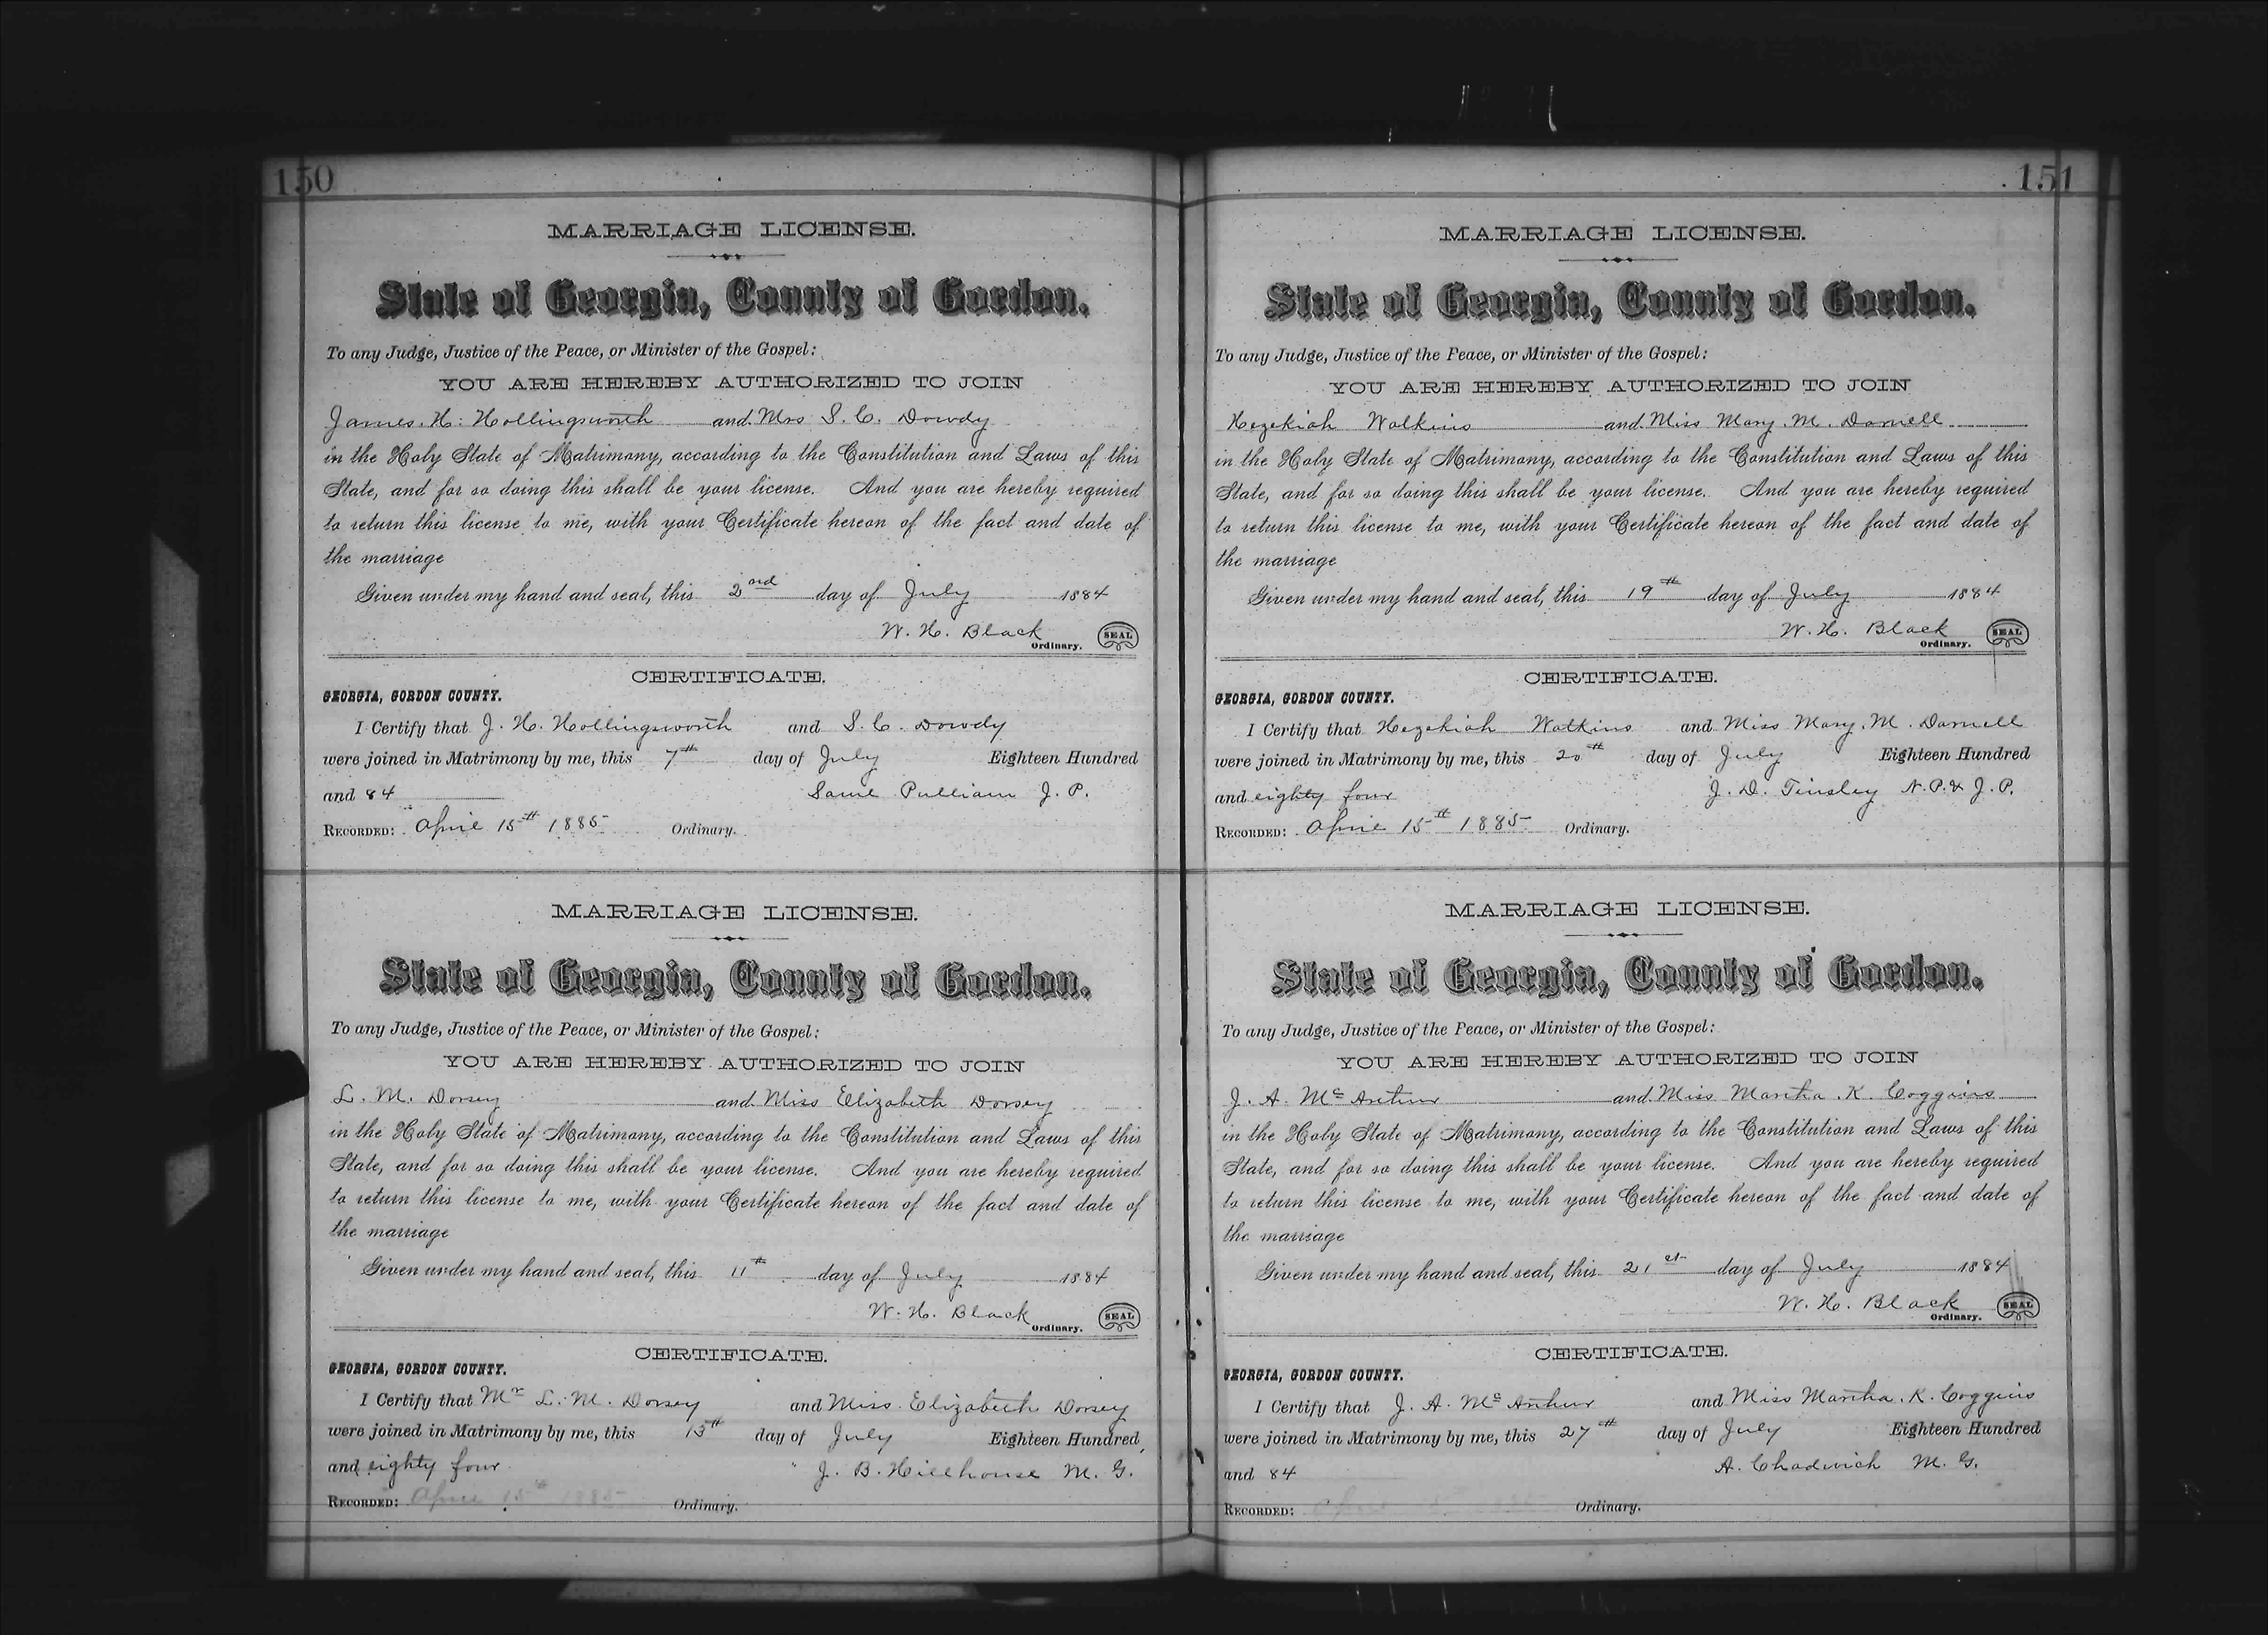 150
MARRIAGE LICENSE.
State of Georgia, County of Gordon.
To any Judge, Justice of the Peace, or Minister of the Gospel:
YOU ARE HEREBY AUTHORIZED TO JOIN
James. H. Hollingsworth and Mrs S. C. Dowdy
in the Holy State of Matrimony, according to the Constitution and Laws of this
State, and for so doing this shall be your license. And you are hereby required
to return this license to me, with your Certificate hereon of the fact and date of
the marriage
Given under my hand and seal, this 2nd day of July 1884
W. H. Black
Ordinary. SEAL
CERTIFICATE.
GEORGIA, GORDON COUNTY.
I Certify that J. H. Hollingsworth and S. C. Dowdy
were joined in Matrimony by me, this 7th day of July Eighteen Hundred
and 84 Saml Pulliam J. P.
RECORDED: April 15th 1885 Ordinary.
MARRIAGE LICENSE.
State of Georgia, County of Gordon.
To any Judge, Justice of the Peace, or Minister of the Gospel:
YOU ARE HEREBY AUTHORIZED TO JOIN
L. M. Dorsey and Miss Elizabeth Dorsey
in the Holy State of Matrimony, according to the Constitution and Laws of this
State, and for so doing this shall be your license. And you are hereby required
to return this license to me, with your Certificate hereon of the fact and date of
the marriage
Given under my hand and seal, this 11th day of July 1884
W. H. Black
Ordinary. SEAL
CERTIFICATE.
GEORGIA, GORDON COUNTY.
I Certify that Mr L. M. Dorsey and Miss Elizabeth Dorsey
were joined in Matrimony by me, this 13th day of July Eighteen Hundred
and eighty four J. B. Hillhouse M. G.
RECORDED: April 15th 1885 Ordinary.
151
MARRIAGE LICENSE.
State of Georgia, County of Gordon.
To any Judge, Justice of the Peace, or Minister of the Gospel:
YOU ARE HEREBY AUTHORIZED TO JOIN
Hezekiah Watkins and Miss Mary. M. Darnell
in the Holy State of Matrimony, according to the Constitution and Laws of this
State, and for so doing this shall be your license. And you are hereby required
to return this license to me, with your Certificate hereon of the fact and date of
the marriage
Given under my hand and seal, this 19th day of July 1884
W. H. Black
Ordinary. SEAL
CERTIFICATE.
GEORGIA, GORDON COUNTY.
I Certify that Hezekiah Watkins and Miss Mary. M. Darnell
were joined in Matrimony by me, this 20th day of July Eighteen Hundred
and eighty four J. D. Tinsley N.P. & J.P.
RECORDED: April 15th 1885 Ordinary.
MARRIAGE LICENSE.
State of Georgia, County of Gordon.
To any Judge, Justice of the Peace, or Minister of the Gospel:
YOU ARE HEREBY AUTHORIZED TO JOIN
J. A. McArthur and Miss Martha. K. Coggins
in the Holy State of Matrimony, according to the Constitution and Laws of this
State, and for so doing this shall be your license. And you are hereby required
to return this license to me, with your Certificate hereon of the fact and date of
the marriage
Given under my hand and seal, this 21st day of July 1884
W. H. Black
Ordinary. SEAL
CERTIFICATE.
GEORGIA, GORDON COUNTY.
I Certify that J. A. McArthur and Miss Martha. K. Coggins
were joined in Matrimony by me, this 27th day of July Eighteen Hundred
and 84 A. Chadwick M. G.
RECORDED: Ordinary.